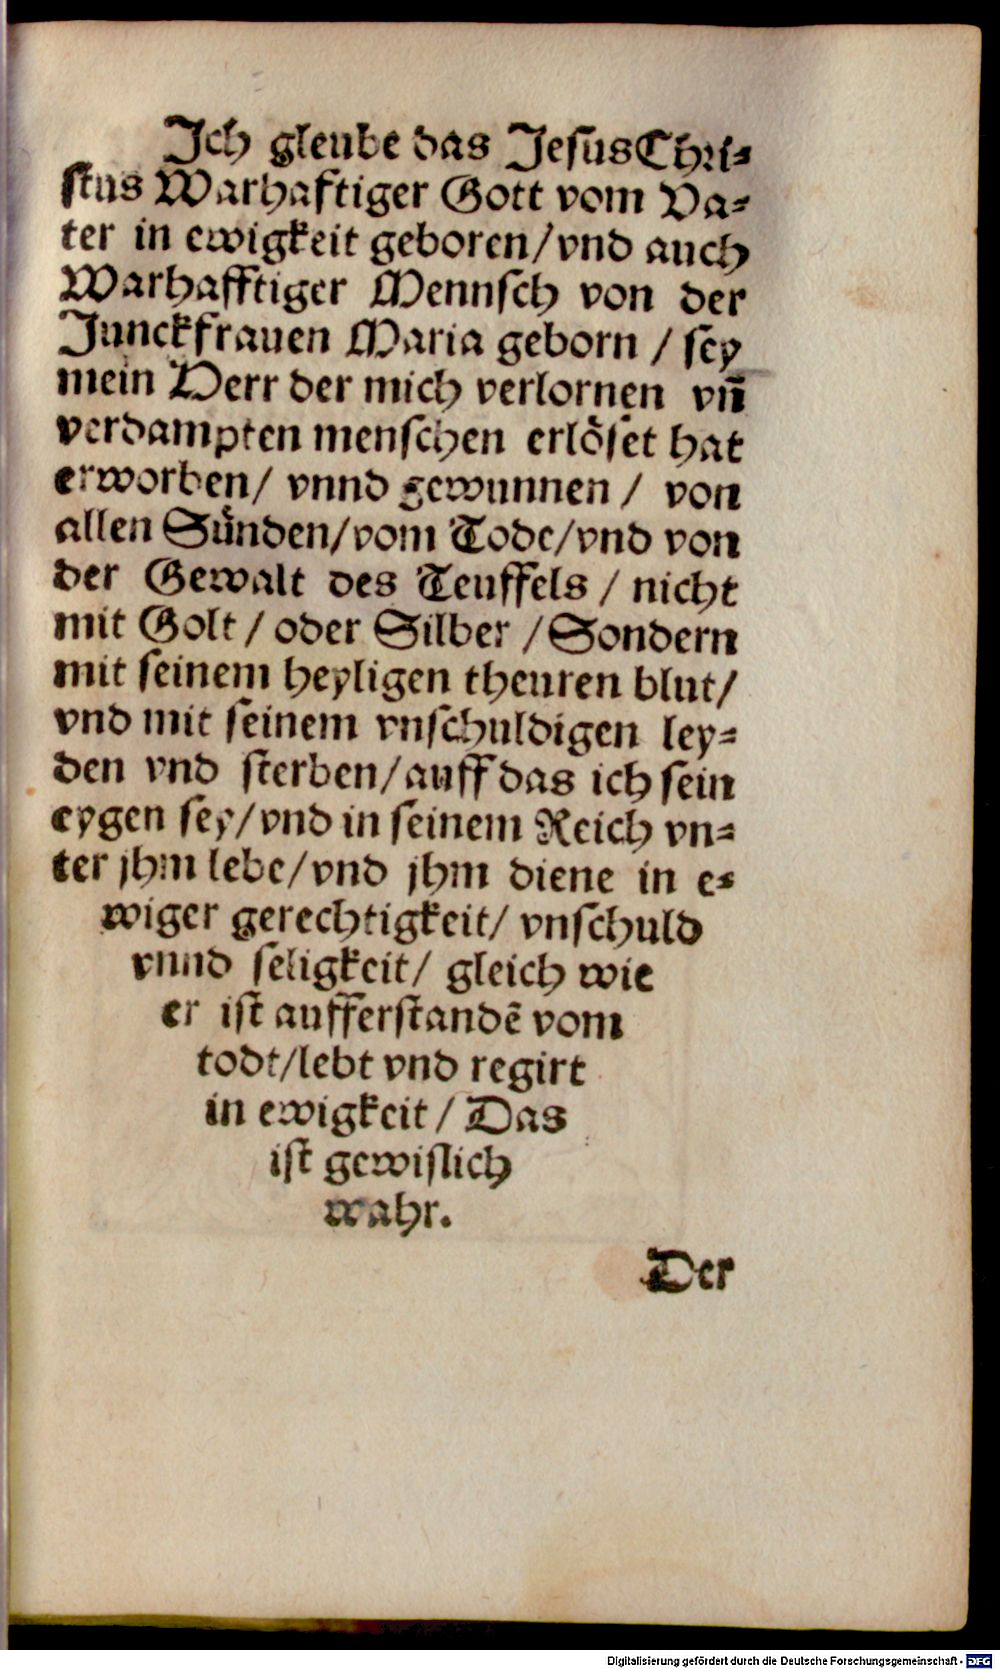 Ich gleube das Jesus Chri-
stus Warhaftiger Gott vom Va-
ter in ewigkeit geboren/vnd auch
Warhafftiger Mennsch von der
Junckfrauen Maria geborn / sey
mein Herr der mich verlornen vn̄
verdampten menschen erlöset hat
erworben/ vnnd gewunnen / von
allen Sünden/vom Tode/vnd von
der Gewalt des Teuffels / nicht
mit Golt / oder Silber / Sondern
mit seinem heyligen theuren blut/
vnd mit seinem vnschuldigen ley-
den vnd sterben/auff das ich sein
eygen sey/vnd in seinem Reich vn-
ter jhm lebe/vnd jhm diene in e-
wiger gerechtigkeit/ vnschuld
vnnd seligkeit/ gleich wie
er ist aufferstandē vom
todt/lebt vnd regirt
in ewigkeit / Das
ist gewislich
wahr.
Der
Digitalisierung gefördert durch die Deutsche Forschungsgemeinschaft - DFG